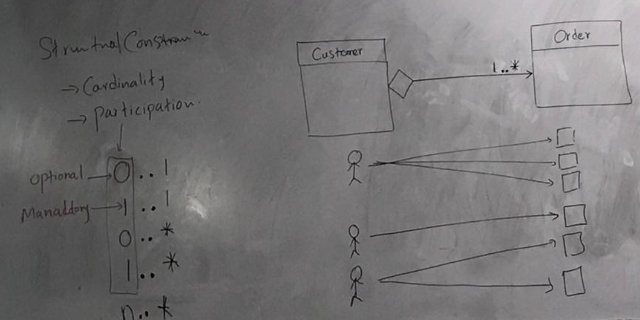 Structural Constrain
→ Cardinality
→ participation
optional → 0..1
Manaddory → 1..1
0..*
1..*
n..*
Customer
1..*
Order